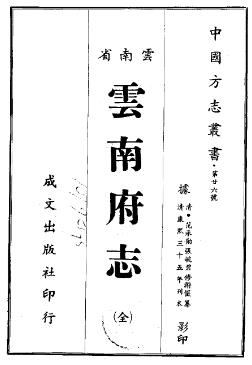 中國方志叢書·第廿六號
據 清·范承勳張毓碧修謝儼纂
清康熙三十五年刊本 影印
雲南省
雲南府志
(全)
成文出版社印行